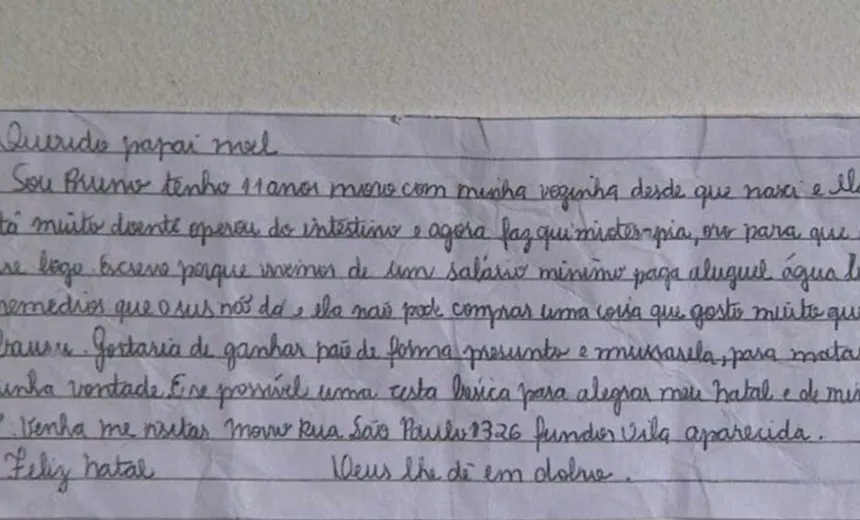 Querido papai noel
Sou Bruno tenho 11 anos moro com minha vozinha desde que nasci e ela
tá muito doente operou do intestino e agora faz quimioterapia, oro para que
re logo. Escrevo porque vivemos de um salário minimo paga aluguel água lu
remedios que o sus nós dá, ela não pode comprar uma coisa que gosto muito que
bauru. Gostaria de ganhar pão de forma presunto e mussarela, para mata
inha vontade. E se possível uma cesta basica para alegrar meu natal e de min
. Venha me visitar moro Rua São Paulo 1326 fundos Vila aparecida.
Feliz natal Deus lhe dê em dobro.